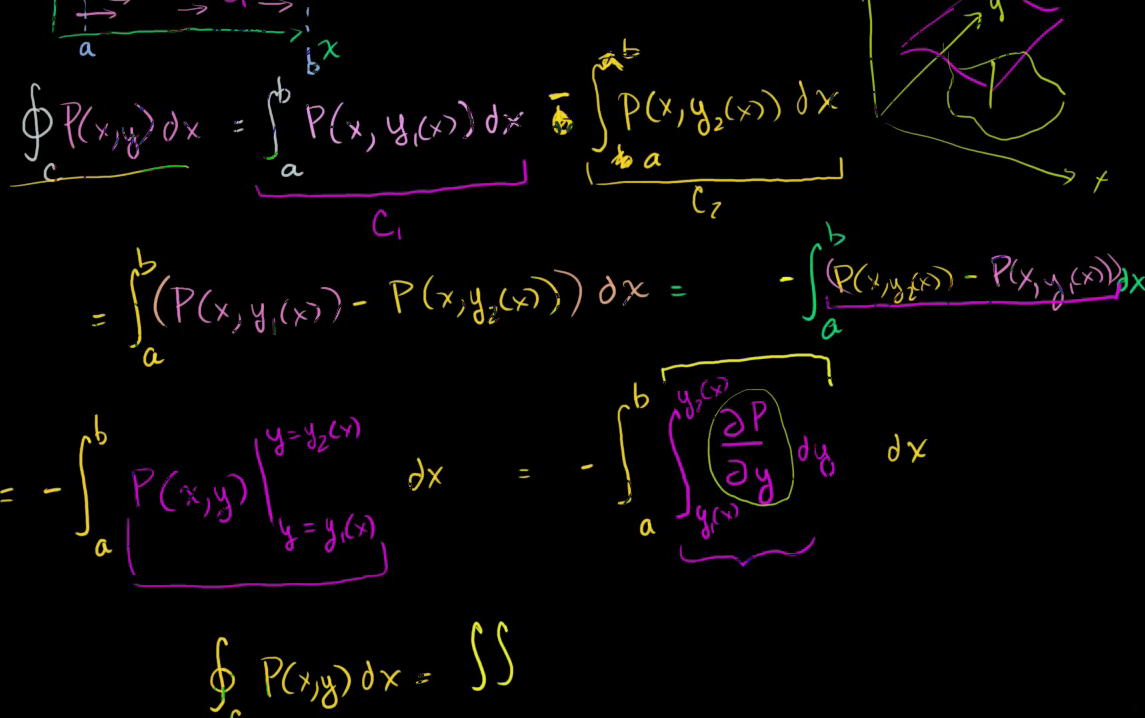 a b x
y x
∮_C P(x,y) dx = ∫_a^b P(x, y₁(x)) dx - ∫_a^b P(x, y₂(x)) dx
C₁ C₂
= ∫_a^b (P(x, y₁(x)) - P(x, y₂(x))) dx = - ∫_a^b (P(x, y₂(x)) - P(x, y₁(x))) dx
= - ∫_a^b P(x,y) |_{y=y₁(x)}^{y=y₂(x)} dx = - ∫_a^b ∫_{y₁(x)}^{y₂(x)} ∂P/∂y dy dx
∮_C P(x,y) dx = ∬